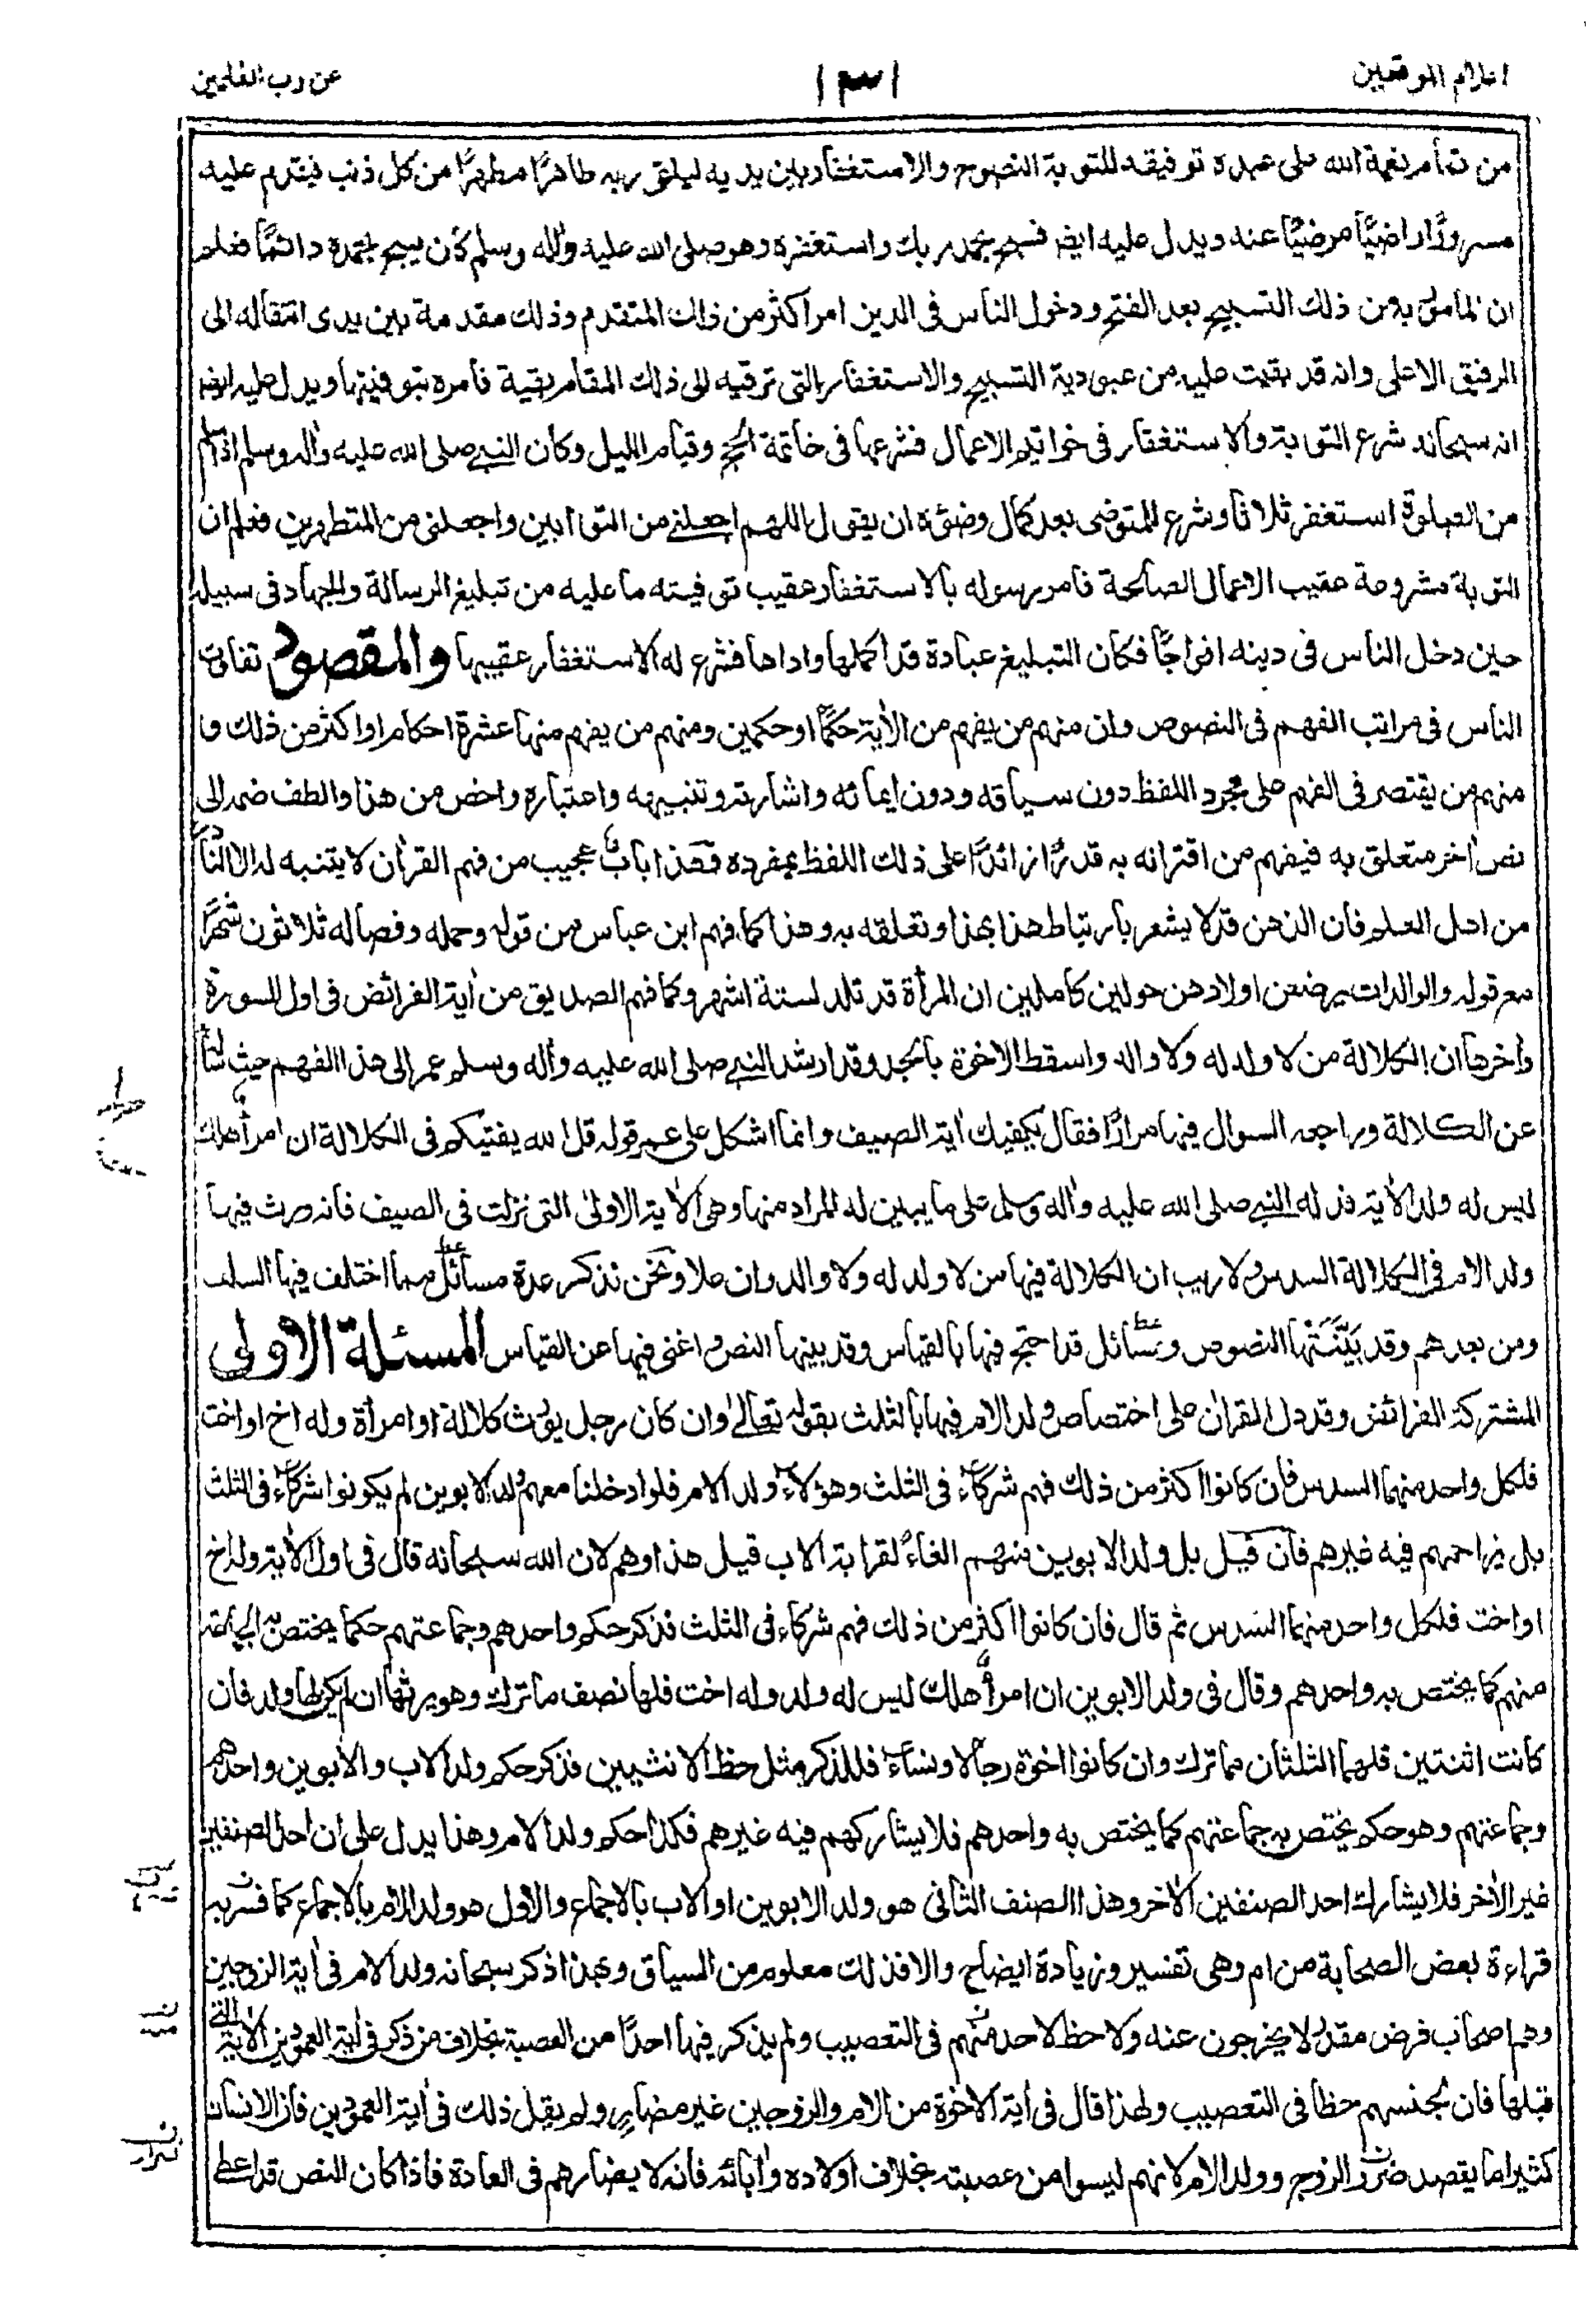 اعلام الموقعين ١٣١ عن رب العلمين
من تمام نعمة الله على عبده توفيقه للتوبة النصوح والاستغفار بين يديه ليلقى ربه طاهرًا مطهرًا من كل ذنب فيقدم عليه
مسرورًا راضيًا مرضيًا عنه ويدل عليه ايضا فسبح بحمد ربك واستغفره وهو صلى الله عليه وأله وسلم كان يسبح بحمده دائمًا فعلم
ان المامور به من ذلك التسبيح بعد الفتح ودخول الناس فى الدين امر اكثر من ذلك المتقدم وذلك مقدمة بين يدى انتقاله الى
الرفيق الاعلى وانه قد بقيت عليه من عبودية التسبيح والاستغفار التى ترقيه الى ذلك المقام بقية فامره بتوفيتها ويدل عليه ايضا
انه سبحانه شرع التوبة والاستغفار فى خواتيم الاعمال فشرعها فى خاتمة الحج وقيام الليل وكان النبى صلى الله عليه وأله وسلم اذا سلم
من الصلوة استغفر ثلاثا وشرع للمتوضى بعد كمال وضوئه ان يقول اللهم اجعلنى من التوابين واجعلنى من المتطهرين فعلم ان
التوبة مشروعة عقيب الاعمال الصالحة فامر رسوله بالاستغفار عقيب توفيته ما عليه من تبليغ الرسالة والجهاد فى سبيله
حين دخل الناس فى دينه افواجًا فكان التبليغ عبادة قد اكملها واداها فشرع له الاستغفار عقيبها والمقصود تفاوت
الناس فى مراتب الفهم فى النصوص وان منهم من يفهم من الأية حكمًا او حكمين ومنهم من يفهم منها عشرة احكام او اكثر من ذلك و
منهم من يقتصر فى الفهم على مجرد اللفظ دون سياقه ودون ايمائه واشارته وتنبيهه واعتباره واخص من هذا والطف ضمه الى
نص أخر متعلق به فيفهم من اقترانه به قدرًا زائدًا على ذلك اللفظ بمفرده فهذا باب عجيب من فهم القرأن لا يتنبه له الا النادر
من اهل العلم فان الذهن قد لا يشعر بارتباط هذا بهذا وتعلقه به وهذا كما فهم ابن عباس من قوله وحمله وفصاله ثلاثون شهرًا
مع قوله والوالدات يرضعن اولادهن حولين كاملين ان المرأة قد تلد لستة اشهر وكما فهم الصديق من أية الفرائض فى اول السورة
وأخرها ان الكلالة من لا ولد له ولا والد واسقط الاخوة بالجد وقد ارشد النبى صلى الله عليه وأله وسلم عمر الى هذا الفهم حيث سأله
عن الكلالة وراجعه السوال فيها مرارًا فقال يكفيك أية الصيف وانما اشكل على عمر قوله قل الله يفتيكم فى الكلالة ان امرأ هلك
ليس له ولد الأية فدله النبى صلى الله عليه وأله وسلم على ما يبين له المراد منها وهى الأية الاولى التى نزلت فى الصيف فانه ورث فيها
ولد الام فى الكلالة السدس ولا ريب ان الكلالة فيها من لا ولد له ولا والد وان علا ونحن نذكر عدة مسائل مما اختلف فيها السلف
ومن بعدهم وقد بَيَّنَتْها النصوص ومسائل قد احتج فيها بالقياس وقد بينها النص واغنى فيها عن القياس المسئلة الاولى
المشتركة الفرائض وقد دل القرأن على اختصاص ولد الام فيها بالثلث بقوله تعالى وان كان رجل يورث كلالة او امرأة وله اخ او اخت
فلكل واحد منهما السدس فان كانوا اكثر من ذلك فهم شركاء فى الثلث وهؤلاء ولد الام فلو ادخلنا معهم ولد الابوين لم يكونوا شركاء فى الثلث
بل يزاحمهم فيه غيرهم فان قيل بل ولد الابوين منهم الغاءً لقرابة الاب قيل هذا وهم لان الله سبحانه قال فى اول الأية وله اخ
او اخت فلكل واحد منهما السدس ثم قال فان كانوا اكثر من ذلك فهم شركاء فى الثلث فذكر حكم واحدهم وجماعتهم حكما يختص به الجماعة
منهم كما يختص به واحدهم وقال فى ولد الابوين ان امرأ هلك ليس له ولد وله اخت فلها نصف ما ترك وهو يرثها ان لم يكن لها ولد فان
كانت اثنتين فلهما الثلثان مما ترك وان كانوا اخوة رجالا ونساء فللذكر مثل حظ الانثيين فذكر حكم ولد الاب والابوين واحدهم
وجماعتهم وهو حكم يختص به جماعتهم كما يختص به واحدهم فلا يشاركهم فيه غيرهم فكذا حكم ولد الام وهذا يدل على ان احد الصنفين
غير الأخر فلا يشارك احد الصنفين الأخر وهذا الصنف الثانى هو ولد الابوين او الاب بالاجماع والاول هو ولد الام بالاجماع كما فسر به
قراءة بعض الصحابة من ام وهى تفسير وزيادة ايضاح والا فذلك معلوم من السياق وبهذا ذكر سبحانه ولد الام فى أية الزوجين
وهم اصحاب فرض مقدر لا يخرجون عنه ولا حظ لاحد منهم فى التعصيب ولم يذكر فيها احدًا من العصبة بخلاف من ذكر فى أية العمودين الأية التى
قبلها فان لجنسهم حظا فى التعصيب ولهذا قال فى أية الاخوة من الام والزوجين غير مضار ولم يقل ذلك فى أية العمودين فان الانسان
كثيرا ما يقصد ضرر الزوج وولد الام لانهم ليسوا من عصبته بخلاف اولاده وأبائه فانه لا يضارهم فى العادة فاذا كان النص قد اعطى